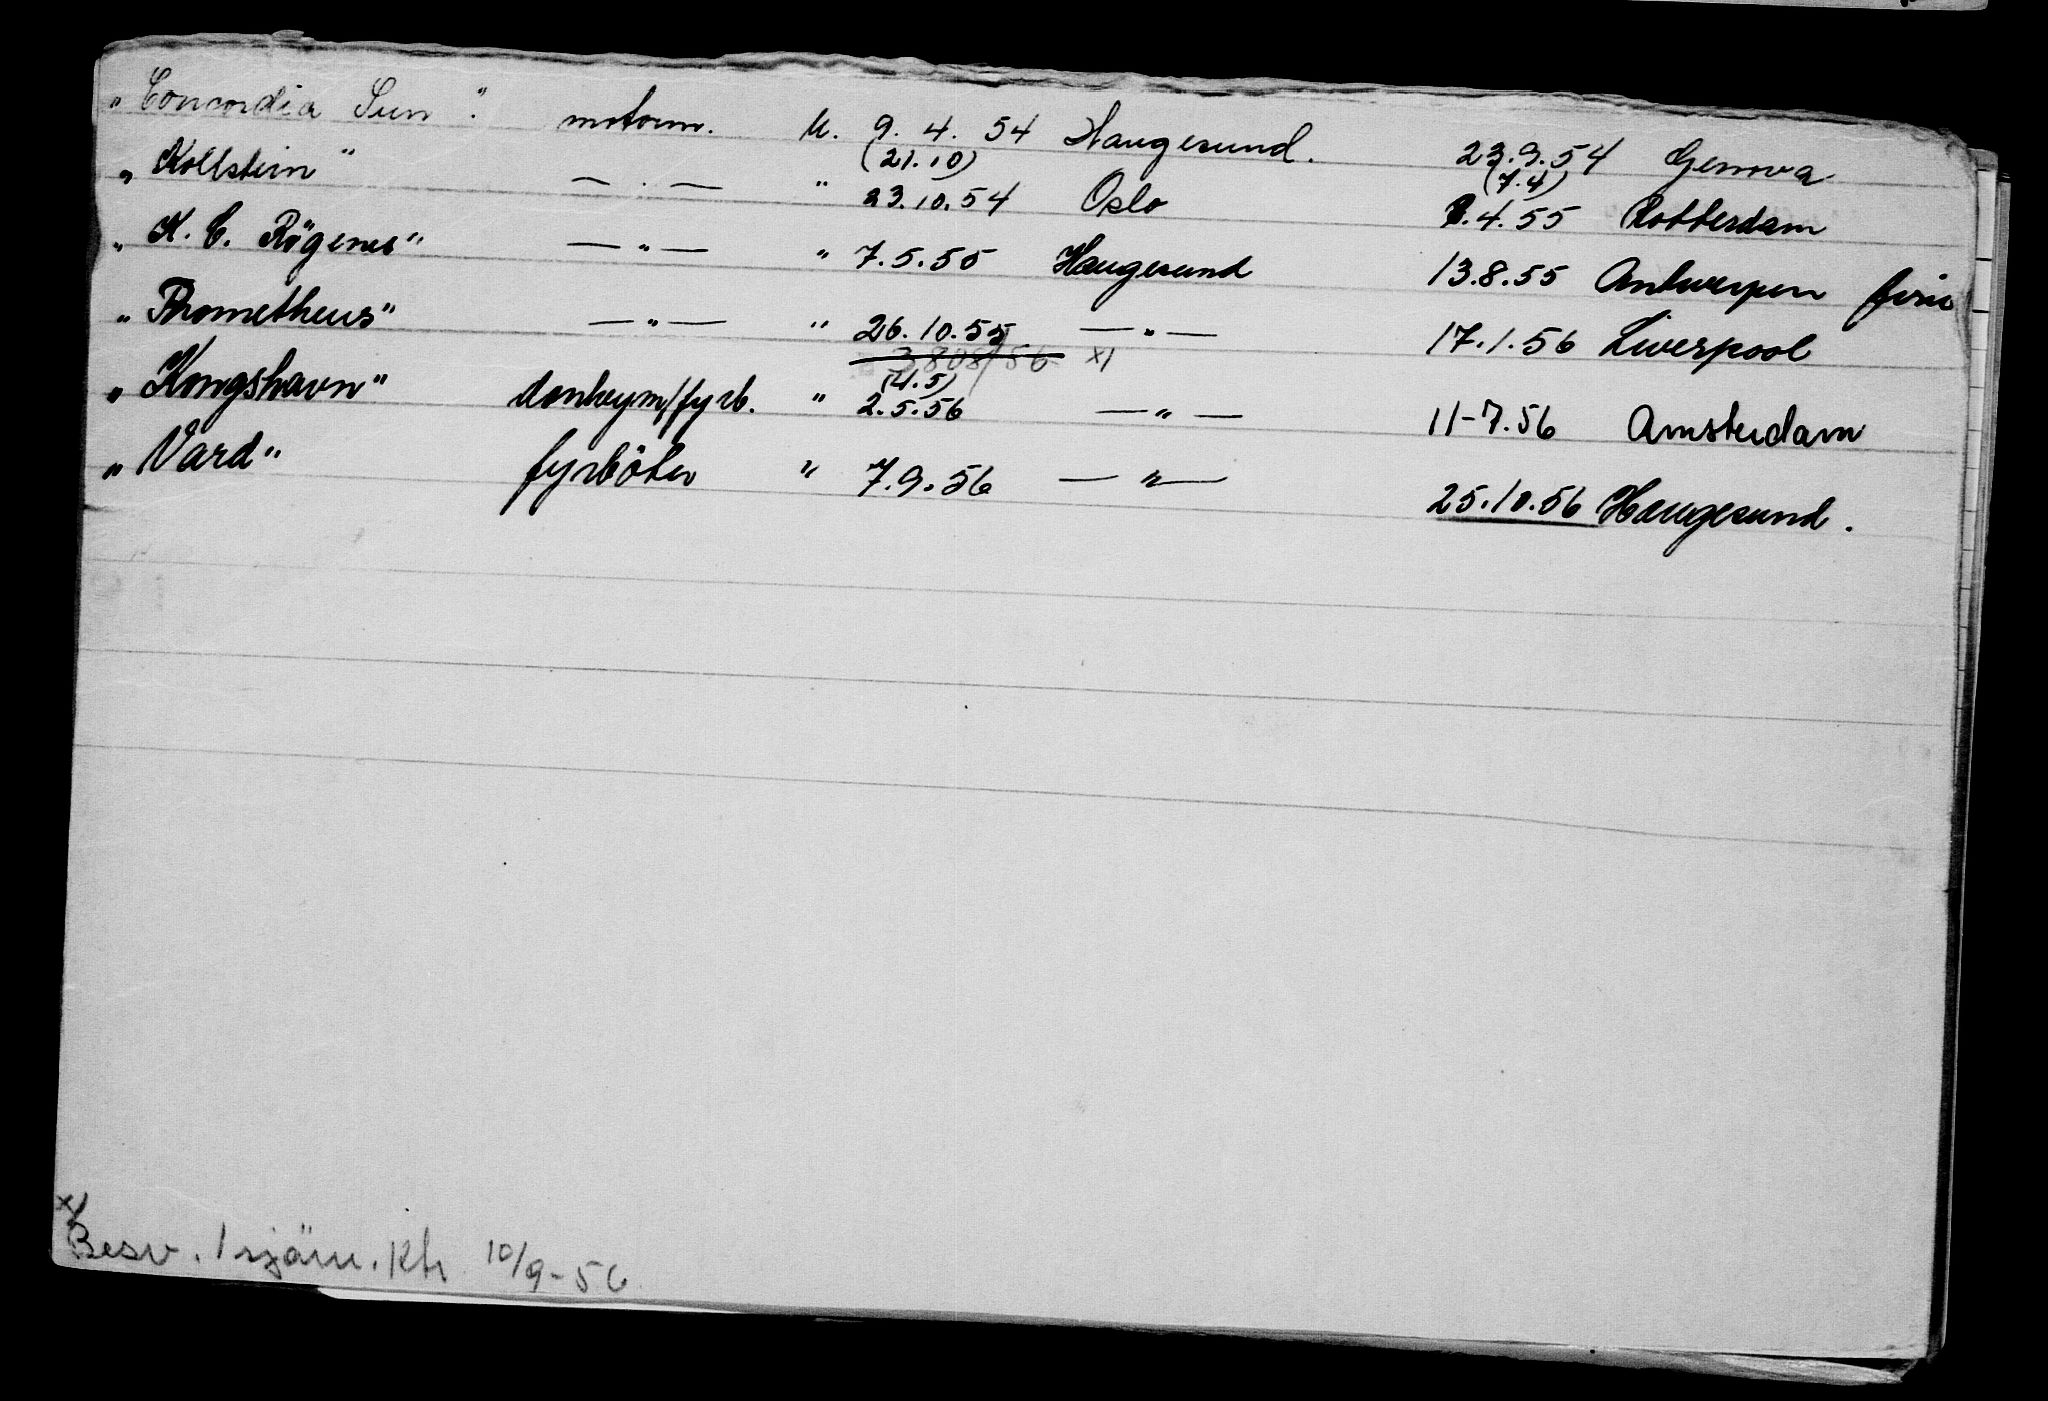 „Concordia Sun". motorm. U. 9. 4. 54 Haugesund. 23.9.54 Genova
(21.10) (7.4)
„Kollstein" — . — " 23.10.54 Oslo 8.4.55 Rotterdam
„K. C. Rögenes" — " — " 7.5.55 Haugesund 13.8.55 Antwerpen
„Prometheus" — " — " 26.10.55 — " — 17.1.56 Liverpool
3808/56 x)
(4.5)
„Kongshavn" donkeym/fyrb. " 2.5.56 — " — 11-7.56 Amsterdam
„Vard" fyrböter " 7.9.56 — " — 25.10.56 Haugesund.
x)
Besv. 10/9-56